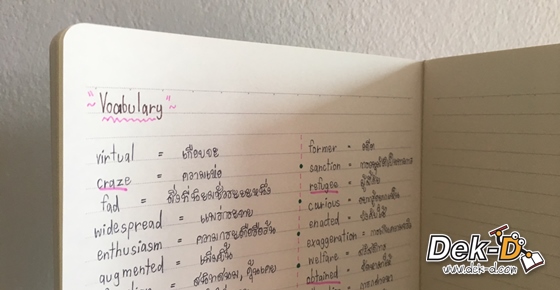 "Vocabulary"
virtual = เกือบจะ
craze = ความคลั่ง
fad = สิ่งที่นิยมชั่วระยะหนึ่ง
widespread = แพร่กระจาย
enthusiasm = ความกระตือรือร้น
augmented = เพิ่มขึ้น
former = อดีต
sanction =
refugee = ผู้ลี้ภัย
curious = อยากรู้อยากเห็น
enacted =
exaggeration =
welfare = สวัสดิการ
obtained =
Dek-D
www.dek-d.com